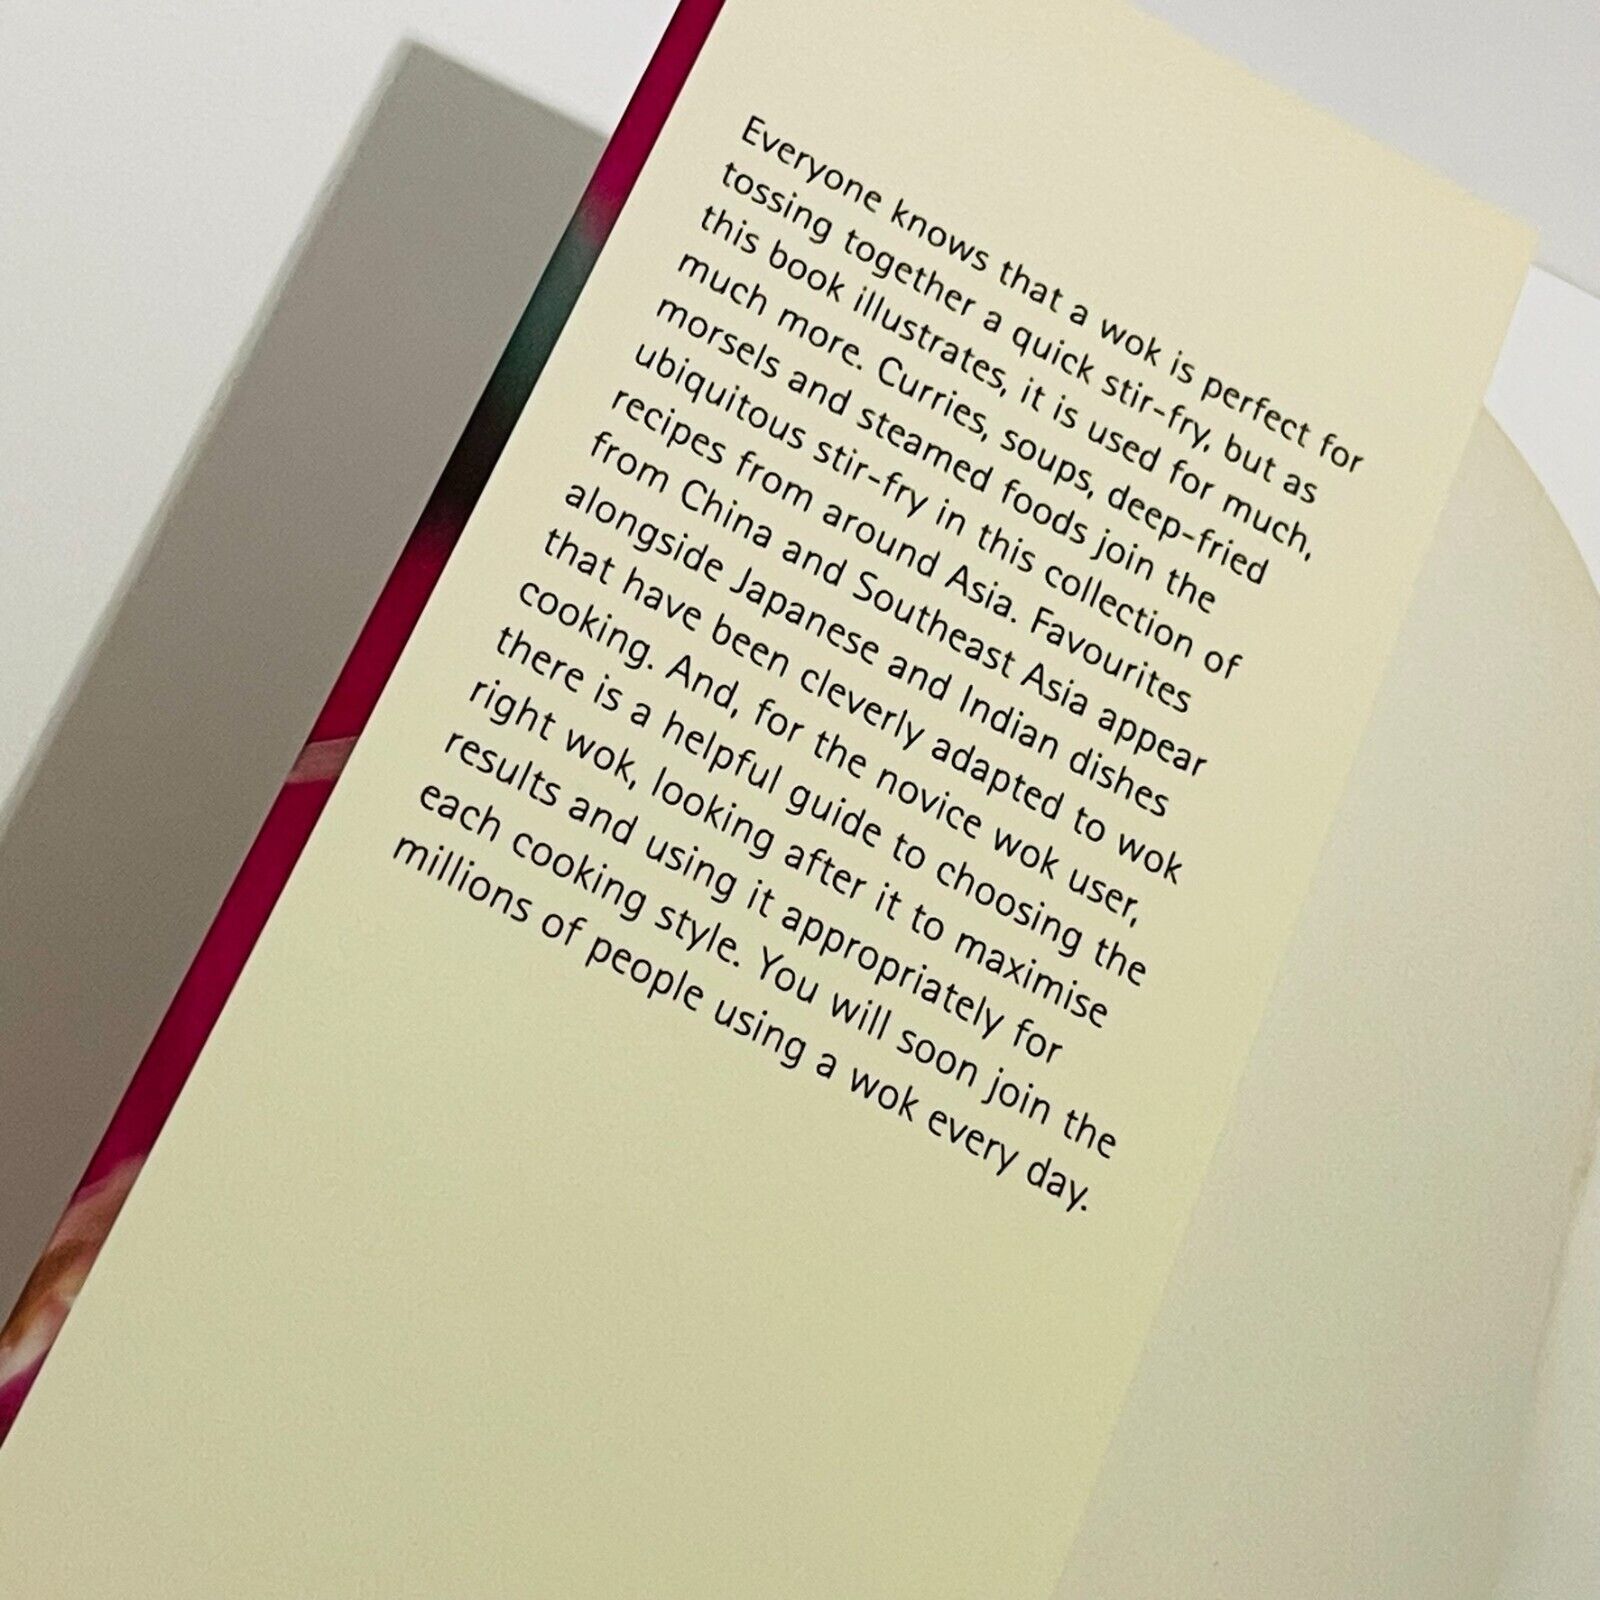 Everyone knows that a wok is perfect for
tossing together a quick stir-fry, but as
this book illustrates, it is used for much,
much more. Curries, soups, deep-fried
morsels and steamed foods join the
ubiquitous stir-fry in this collection of
recipes from around Asia. Favourites
from China and Southeast Asia appear
alongside Japanese and Indian dishes
that have been cleverly adapted to wok
cooking. And, for the novice wok user,
there is a helpful guide to choosing the
right wok, looking after it to maximise
results and using it appropriately for
each cooking style. You will soon join the
millions of people using a wok every day.